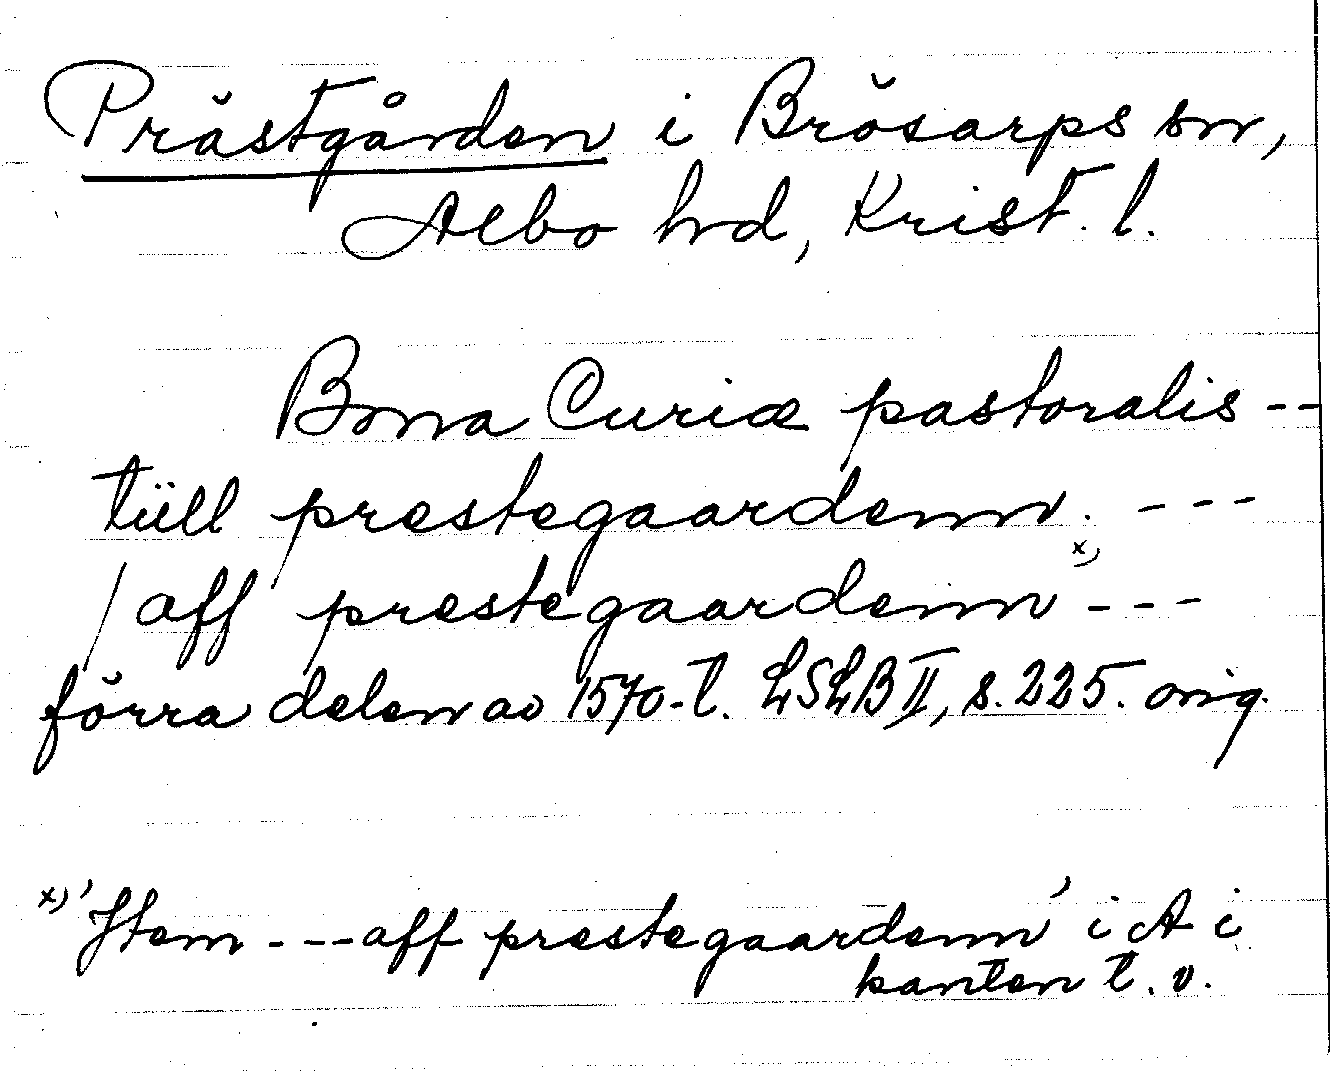 Prästgården i Brösarps sn,
Albo hd, Krist. l.
Bona Curiæ pastoralis --
tüll prestegaardenn. ---
/ aff prestegaardenn x) ---
förra delen av 1570-t. LSLB II, s. 225. orig.
x) 'Jtem --- aff prestegaardenn' i A i
kanten t. v.